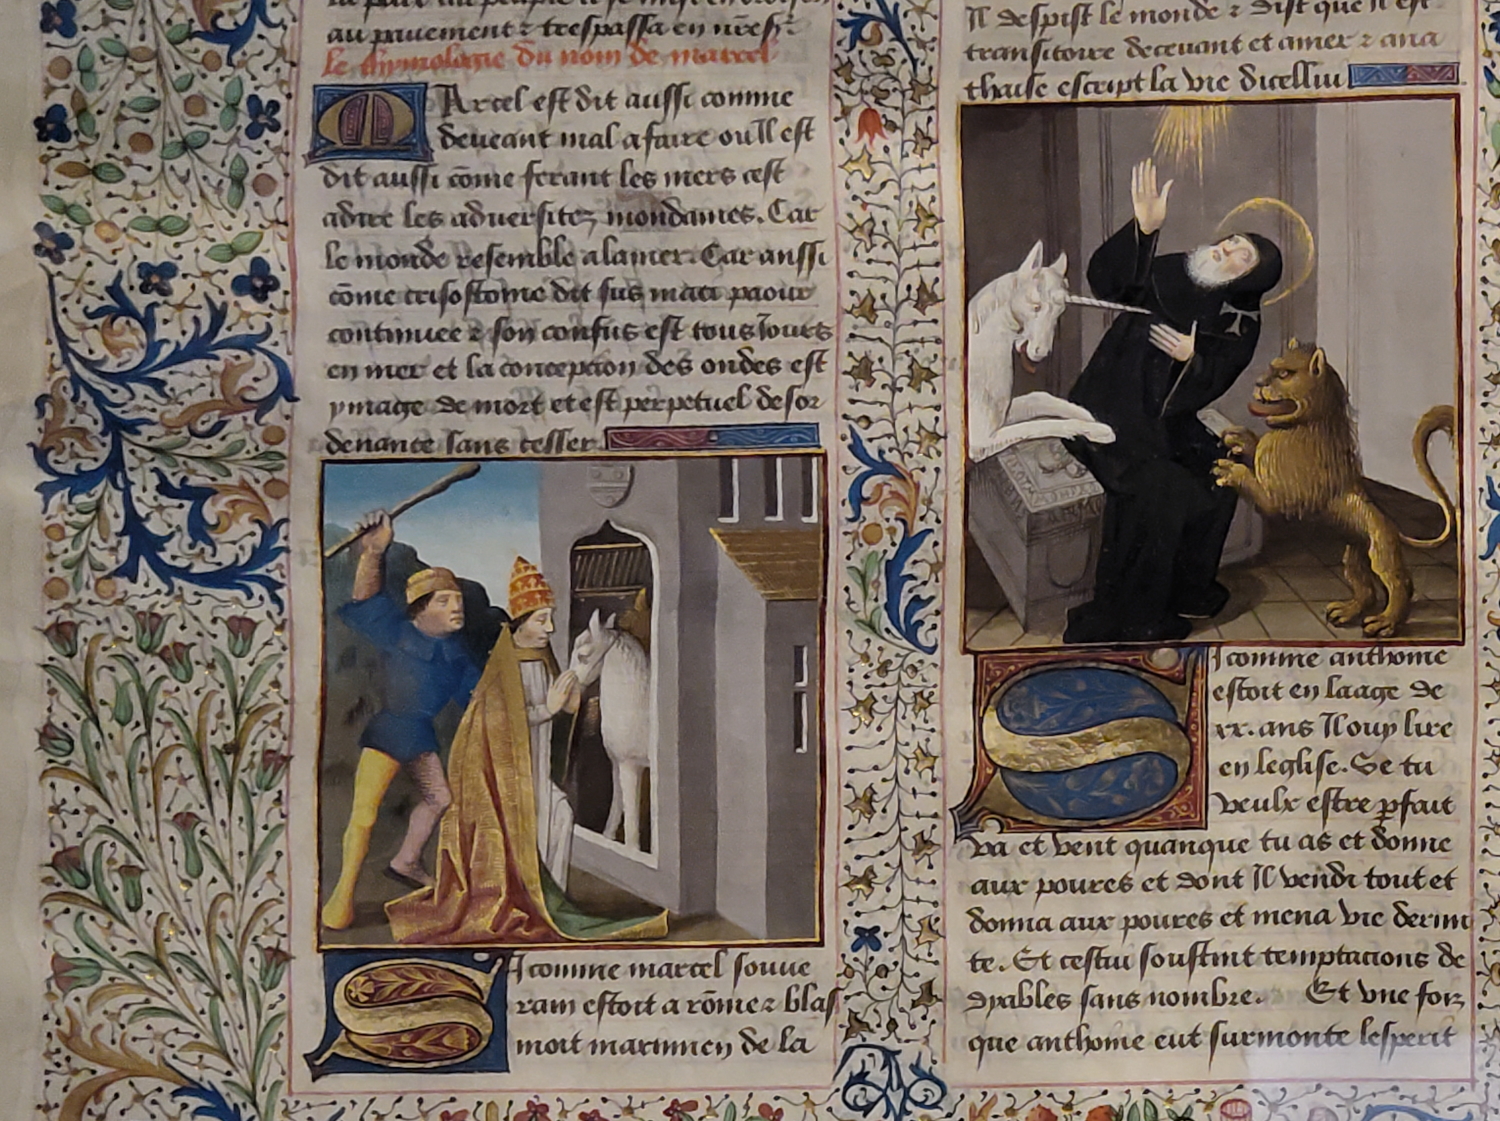 au pavement ⁊ trespassa en
le thymologie du nom de marcel
Marcel est dit aussi comme
deueant mal a faire ou Il est
dit aussi cōme ferant les mers cest
adire les aduersitez mondaines. Car
le monde resemble a la mer. Car aussi
cōme crisostome dit sus paour
continuee ⁊ son confus est tous Iours
en mer et la concepcion des ondes est
ymage de mort et est perpetuel desor
denante sans cesser.
SI comme marcel souue
rain estoit a rōme ⁊ blas
moit maximien de la
Il despist le monde ⁊ dist que Il est
transitoire deceuant et amer ⁊ ana
thaise escript la vie dicelluy
SI comme anthoine
estoit en laage de
xx. ans Il ouy lire
en leglise. Se tu
veulx estre pfait
va et vent quanque tu as et donne
aux poures et dont Il vendi tout et
donna aux poures et mena vie dermi
te. Et cestui soustint temptacions de
dyables sans nombre. Et vne foiz
que anthoine eut surmonte lesperit